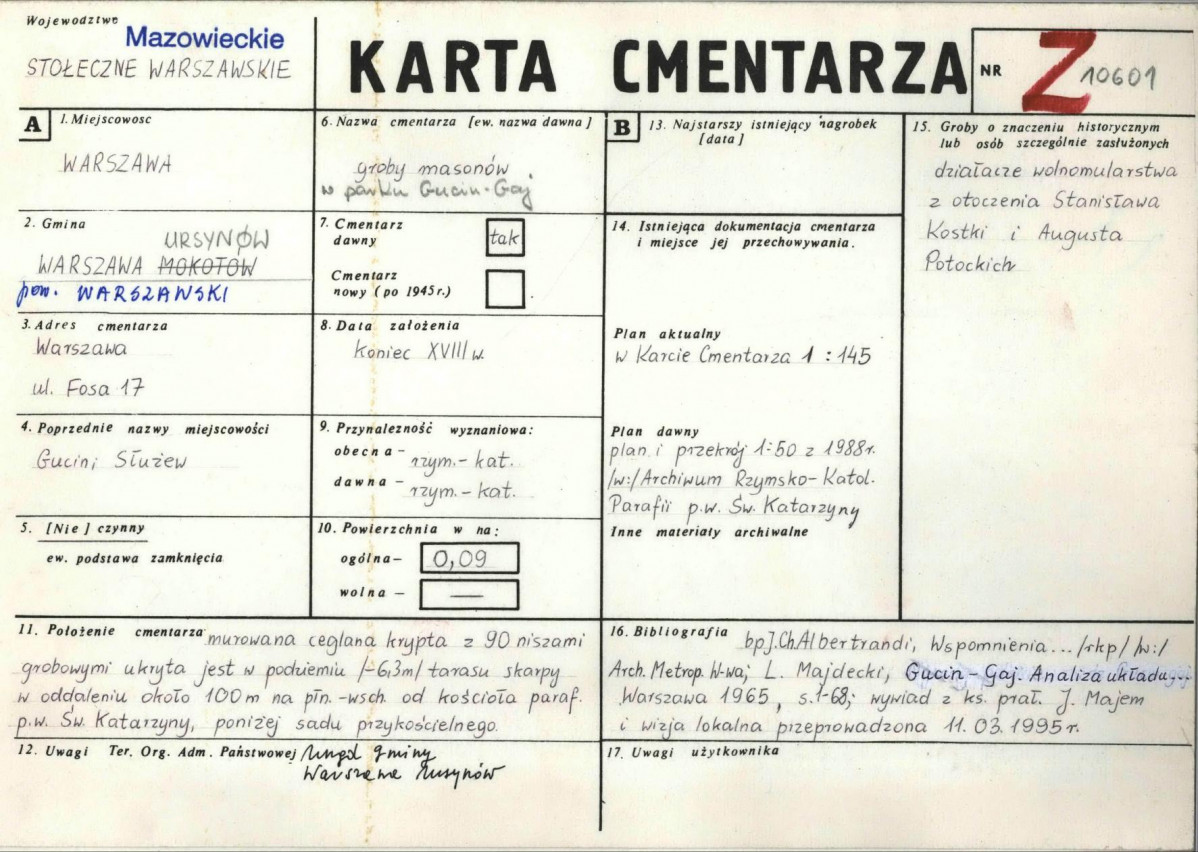 Województwo
Mazowieckie
STOŁECZNE WARSZAWSKIE
KARTA CMENTARZA
NR
Z 10601
A
1. Miejscowosc
WARSZAWA
2. Gmina
URSYNÓW
WARSZAWA MOKOTÓW
pow. WARSZAWSKI
3. Adres cmentarza
Warszawa
ul. Fosa 17
4. Poprzednie nazwy miejscowości
Gucin; Służew
5. [Nie] czynny
ew. podstawa zamknięcia
6. Nazwa cmentarza [ew. nazwa dawna]
groby masonów
w parku Gucin-Gaj
7. Cmentarz
dawny
tak
Cmentarz
nowy (po 1945 r.)
8. Data założenia
koniec XVIII w.
9. Przynależność wyznaniowa:
obecna - rzym.-kat.
dawna - rzym.-kat.
10. Powierzchnia w ha:
ogólna - 0,09
wolna - —
B
13. Najstarszy istniejący nagrobek
[data]
14. Istniejąca dokumentacja cmentarza
i miejsce jej przechowywania.
Plan aktualny
w Karcie Cmentarza 1 : 145
Plan dawny
plan i przekrój 1:50 z 1988r.
/w:/Archiwum Rzymsko-Katol.
Parafii p.w. Św. Katarzyny
Inne materiały archiwalne
15. Groby o znaczeniu historycznym
lub osób szczególnie zasłużonych
działacze wolnomularstwa
z otoczenia Stanisława
Kostki i Augusta
Potockich
11. Położenie cmentarza murowana ceglana krypta z 90 niszami
grobowymi ukryta jest w podziemiu /-6,3m/ tarasu skarpy
w oddaleniu około 100m na płn.-wsch. od kościoła paraf.
p.w. Św. Katarzyny, poniżej sadu przykościelnego.
12. Uwagi Ter. Org. Adm. Państwowej Urząd Gminy
Warszawa Ursynów
16. Bibliografia bp J.Ch. Albertrandi, Wspomnienia... /rkp/ /w:/
Arch. Metrop. W-wa; L. Majdecki, Gucin-Gaj. Analiza układu...
Warszawa 1965, s.1-68; wywiad z ks. prał. J. Majem
i wizja lokalna przeprowadzona 11.03.1995r.
17. Uwagi użytkownika